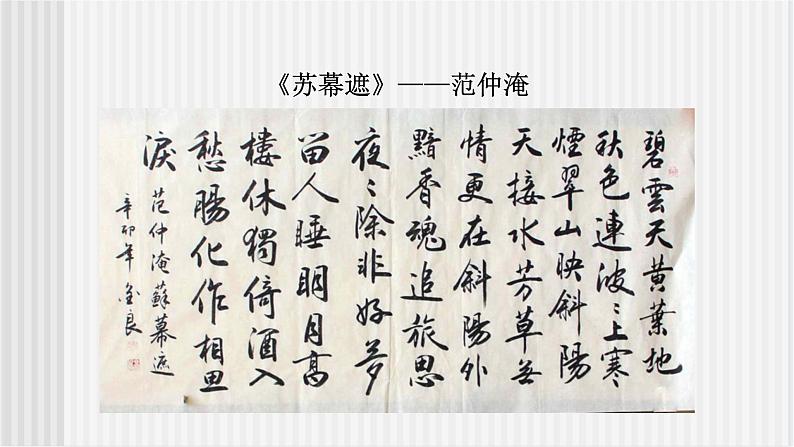 《苏幕遮》——范仲淹
碧雲天黄葉地
秋色連波〻上寒
煙翠山映斜陽
天接水芳草無
情更在斜陽外
黯香魂追旅思
夜〻除非好夢
留人睡明月高
樓休獨倚酒入
愁腸化作相思
淚
范仲淹蘇幕遮
辛卯年金良